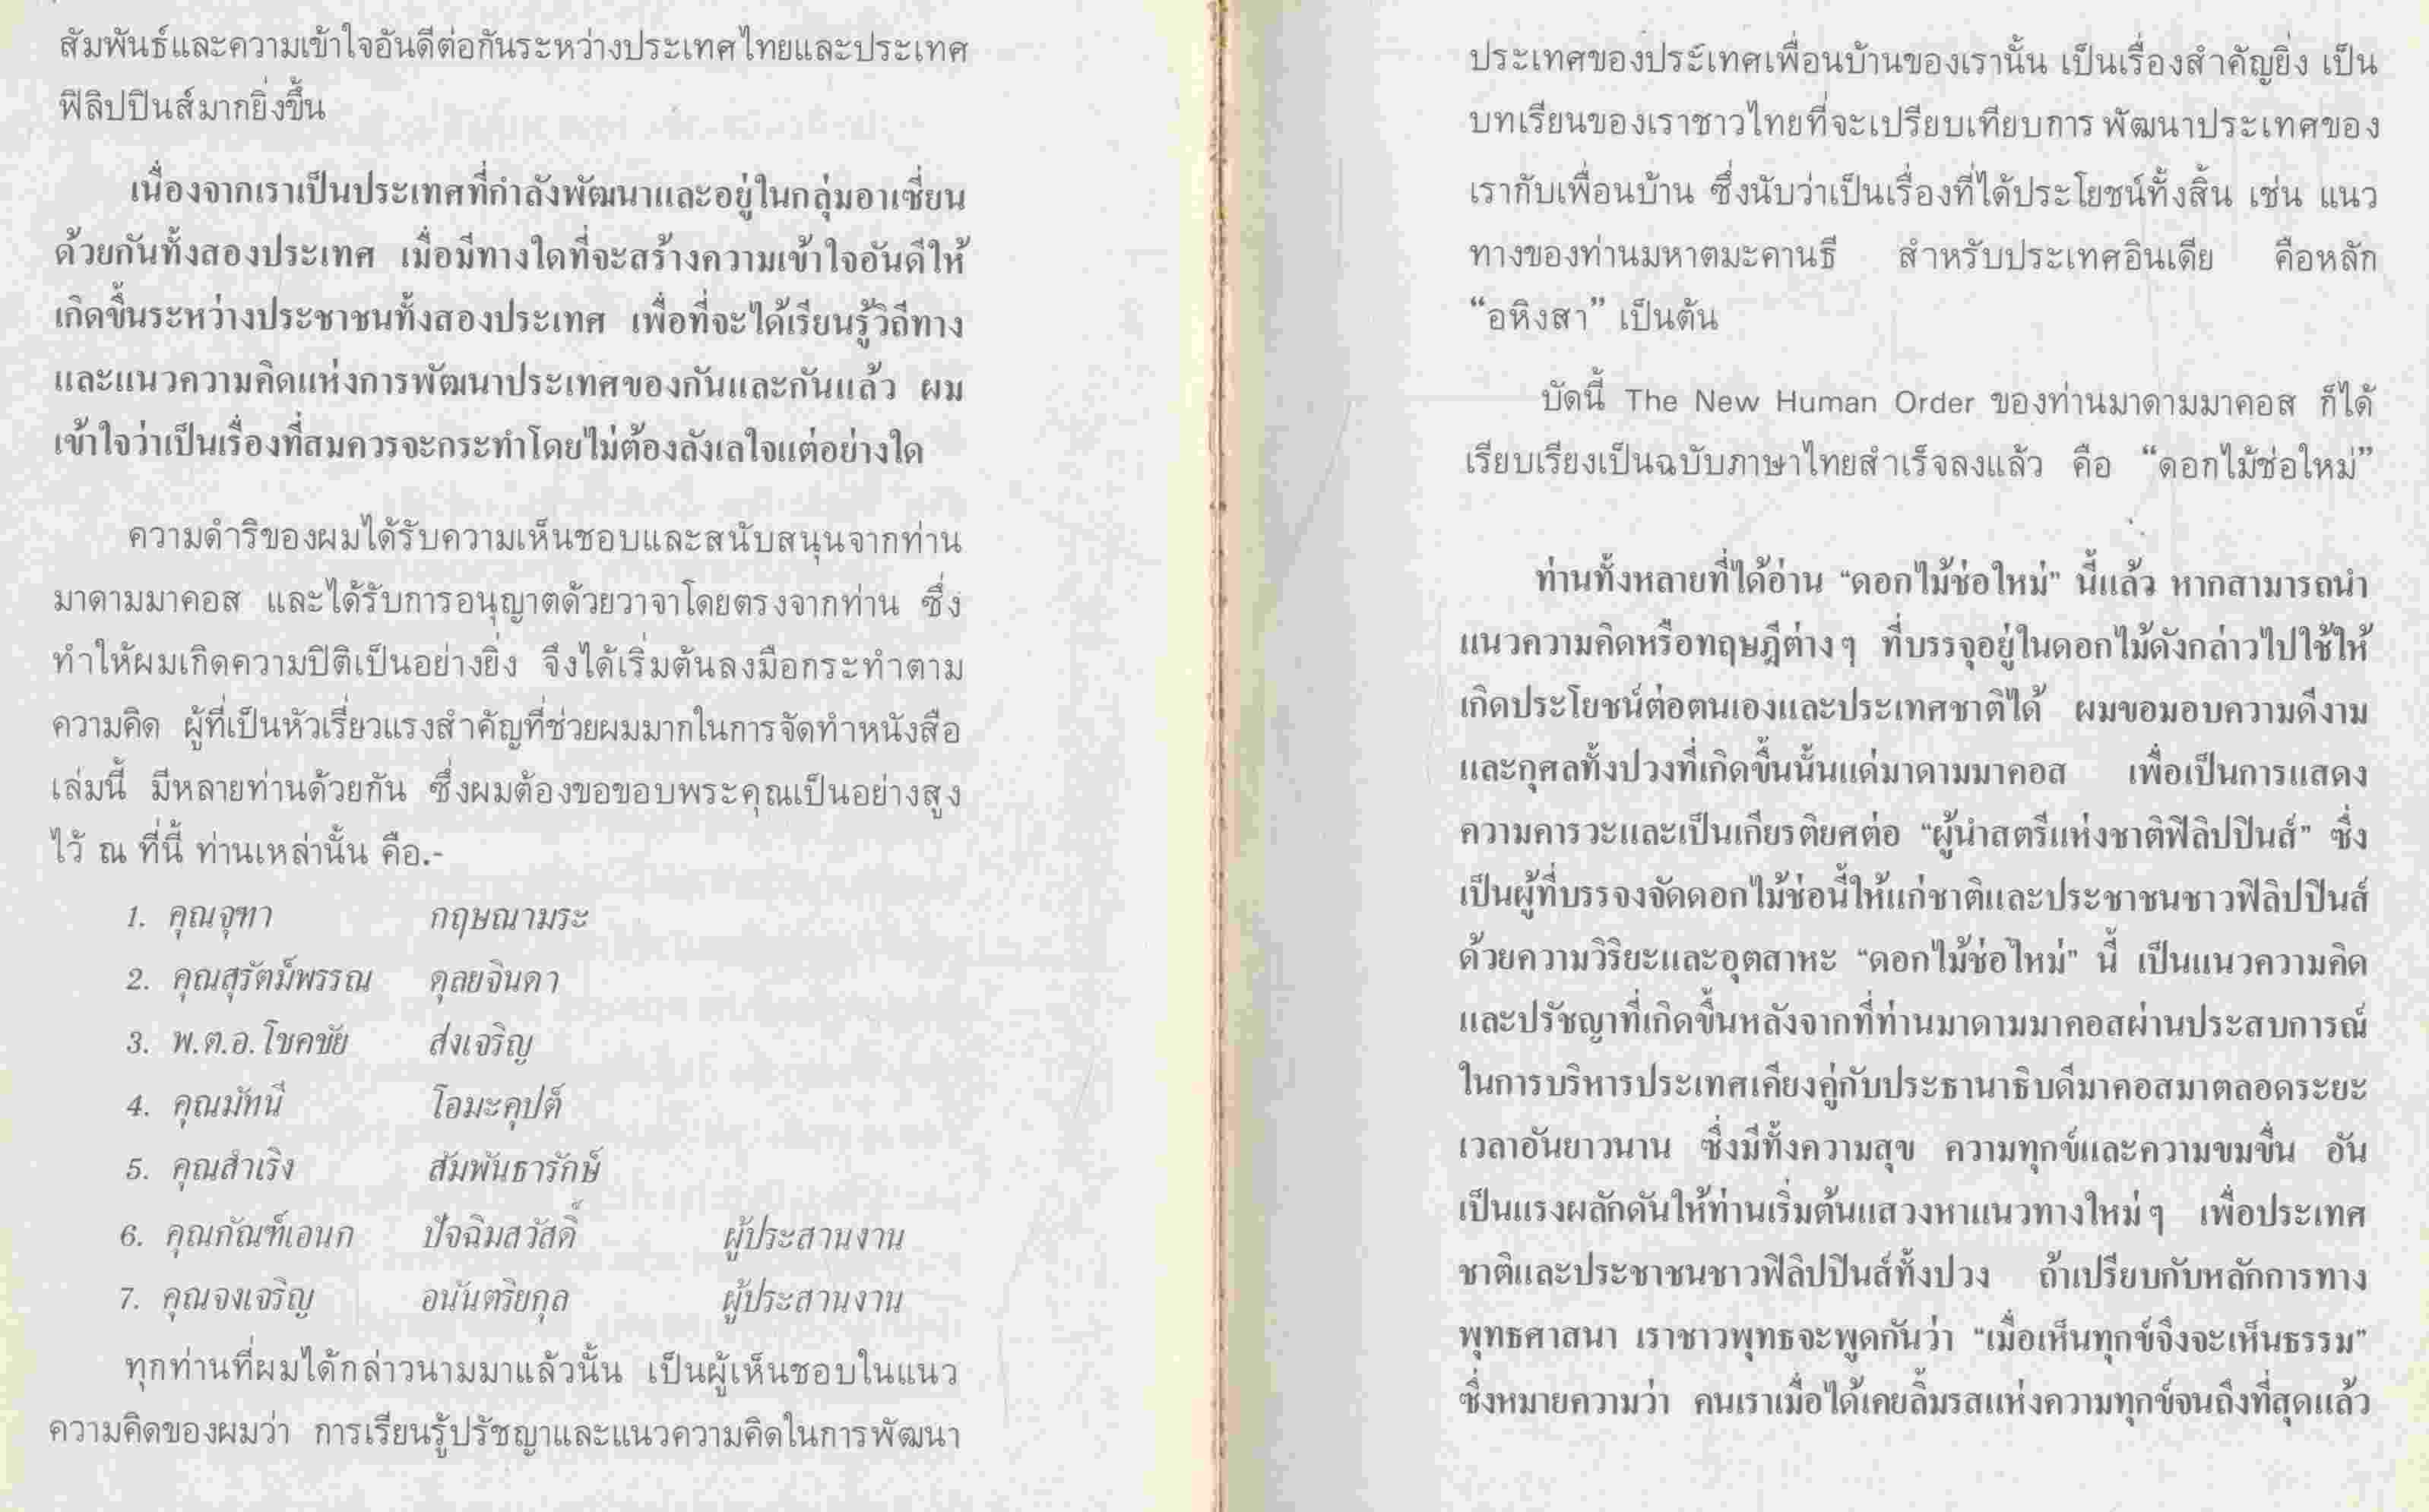 สัมพันธ์และความเข้าใจอันดีต่อกันระหว่างประเทศไทยและประเทศ
ฟิลิปปินส์มากยิ่งขึ้น
เนื่องจากเราเป็นประเทศที่กำลังพัฒนาและอยู่ในกลุ่มอาเซี่ยน
ด้วยกันทั้งสองประเทศ เมื่อมีทางใดที่จะสร้างความเข้าใจอันดีให้
เกิดขึ้นระหว่างประชาชนทั้งสองประเทศ เพื่อที่จะได้เรียนรู้วิถีทาง
และแนวความคิดแห่งการพัฒนาประเทศของกันและกันแล้ว ผม
เข้าใจว่าเป็นเรื่องที่สมควรจะกระทำโดยไม่ต้องลังเลใจแต่อย่างใด
ความดำริของผมได้รับความเห็นชอบและสนับสนุนจากท่าน
มาดามมาคอส และได้รับการอนุญาตด้วยวาจาโดยตรงจากท่าน ซึ่ง
ทำให้ผมเกิดความปิติเป็นอย่างยิ่ง จึงได้เริ่มต้นลงมือกระทำตาม
ความคิด ผู้ที่เป็นหัวเรี่ยวแรงสำคัญที่ช่วยผมมากในการจัดทำหนังสือ
เล่มนี้ มีหลายท่านด้วยกัน ซึ่งผมต้องขอขอบพระคุณเป็นอย่างสูง
ไว้ ณ ที่นี้ ท่านเหล่านั้น คือ.-
1. คุณจุฑา กฤษณามระ
2. คุณสุรัตม์พรรณ ดุลยจินดา
3. พ.ต.อ. โชคชัย ส่งเจริญ
4. คุณมัทนี โอมะคุปต์
5. คุณสำเริง สัมพันธารักษ์
6. คุณกัณฑ์เอนก ปัจฉิมสวัสดิ์ ผู้ประสานงาน
7. คุณจงเจริญ อนันตริยกุล ผู้ประสานงาน
ทุกท่านที่ผมได้กล่าวนามมาแล้วนั้น เป็นผู้เห็นชอบในแนว
ความคิดของผมว่า การเรียนรู้ปรัชญาและแนวความคิดในการพัฒนา
ประเทศของประเทศเพื่อนบ้านของเรานั้น เป็นเรื่องสำคัญยิ่ง เป็น
บทเรียนของเราชาวไทยที่จะเปรียบเทียบการ พัฒนาประเทศของ
เรากับเพื่อนบ้าน ซึ่งนับว่าเป็นเรื่องที่ได้ประโยชน์ทั้งสิ้น เช่น แนว
ทางของท่านมหาตมะคานธี สำหรับประเทศอินเดีย คือหลัก
“อหิงสา” เป็นต้น
บัดนี้ The New Human Order ของท่านมาดามมาคอส ก็ได้
เรียบเรียงเป็นฉบับภาษาไทยสำเร็จลงแล้ว คือ “ดอกไม้ช่อใหม่”
ท่านทั้งหลายที่ได้อ่าน “ดอกไม้ช่อใหม่” นี้แล้ว หากสามารถนำ
แนวความคิดหรือทฤษฎีต่างๆ ที่บรรจุอยู่ในดอกไม้ดังกล่าวไปใช้ให้
เกิดประโยชน์ต่อตนเองและประเทศชาติได้ ผมขอมอบความดีงาม
และกุศลทั้งปวงที่เกิดขึ้นนั้นแด่มาดามมาคอส เพื่อเป็นการแสดง
ความคารวะและเป็นเกียรติยศต่อ “ผู้นำสตรีแห่งชาติฟิลิปปินส์” ซึ่ง
เป็นผู้ที่บรรจงจัดดอกไม้ช่อนี้ให้แก่ชาติและประชาชนชาวฟิลิปปินส์
ด้วยความวิริยะและอุตสาหะ “ดอกไม้ช่อใหม่” นี้ เป็นแนวความคิด
และปรัชญาที่เกิดขึ้นหลังจากที่ท่านมาดามมาคอสผ่านประสบการณ์
ในการบริหารประเทศเคียงคู่กับประธานาธิบดีมาคอสมาตลอดระยะ
เวลาอันยาวนาน ซึ่งมีทั้งความสุข ความทุกข์และความขมขื่น อัน
เป็นแรงผลักดันให้ท่านเริ่มต้นแสวงหาแนวทางใหม่ๆ เพื่อประเทศ
ชาติและประชาชนชาวฟิลิปปินส์ทั้งปวง ถ้าเปรียบกับหลักการทาง
พุทธศาสนา เราชาวพุทธจะพูดกันว่า “เมื่อเห็นทุกข์จึงจะเห็นธรรม”
ซึ่งหมายความว่า คนเราเมื่อได้เคยลิ้มรสแห่งความทุกข์จนถึงที่สุดแล้ว